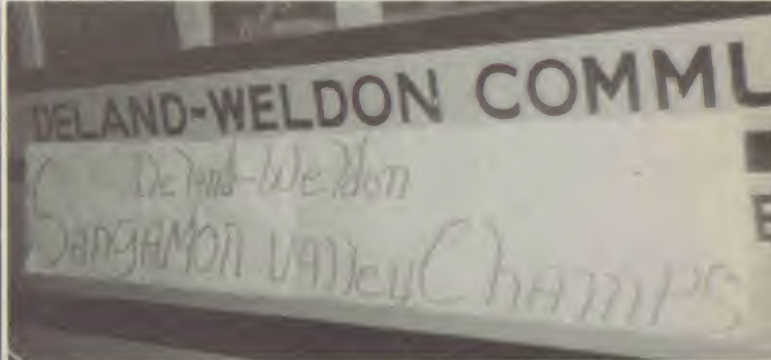 DELAND-WELDON COMMU
Deland-Weldon
Sangamon Valley Champs